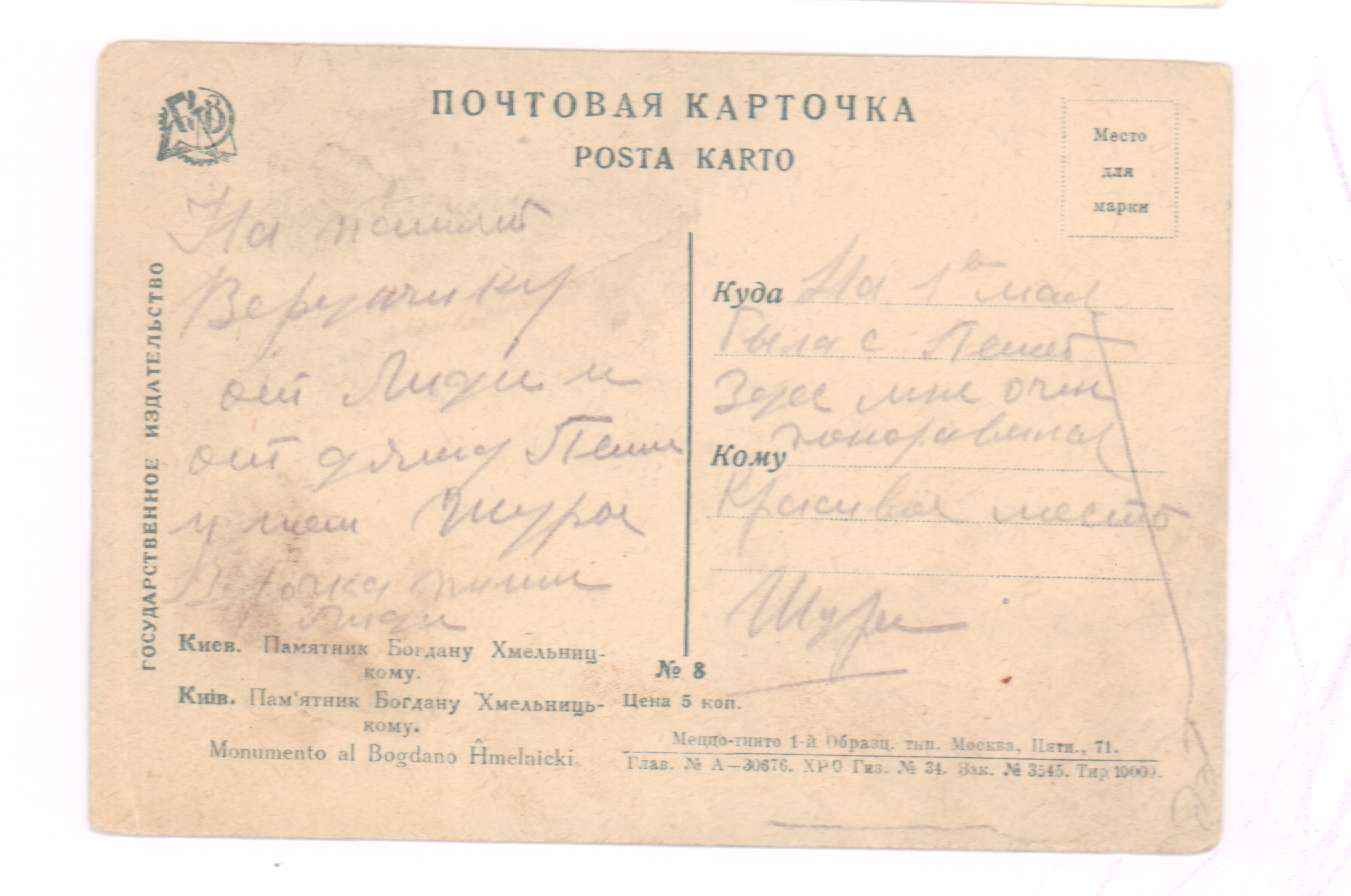 ПОЧТОВАЯ КАРТОЧКА
POSTA KARTO
Место
для
марки
ГОСУДАРСТВЕННОЕ ИЗДАТЕЛЬСТВО
На
Верунчику
от Лиды и
от дяди Пети
и тети Шуры
Лиди
Куда На 1е мая
Была с Петей
Здес мне очен
понаравилас
Кому
Красивае место
Шура
Киев. Памятник Богдану Хмельниц-
кому.
Київ. Пам'ятник Богдану Хмельниць-
кому.
Monumento al Bogdano Ĥmelnicki.
№ 8
Цена 5 коп.
Меццо-тинто 1-й Образц. тип. Москва, Пятн., 71.
Глав. № А—30676. ХРО Гиз. № 34. Зак. № 3545. Тир 10000.